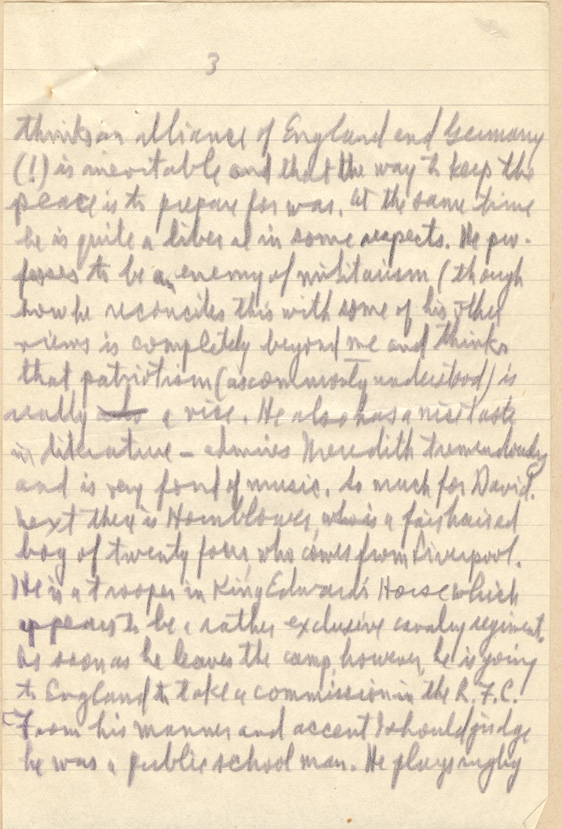 3
thinks an alliance of England and Germany
(!) is inevitable and that the way to keep the
peace is to prepare for war. At the same time
he is quite a liberal in some respects. He pro-
fesses to be an enemy of militarism (though
how he reconciles this with some of his other
views is completely beyond me and thinks
that patriotism (as commonly understood) is
really a vice. He also has a nice taste
in literature – admires Meredith tremendously
and is very fond of music. So much for David.
Next there is Hornblower, who is a fairhaired
boy of twenty four, who comes from Liverpool.
He is a trooper in King Edward's Horse which
appears to be a rather exclusive cavalry regiment.
As soon as he leaves the camp however he is going
to England to take a commission in the R.F.C.
From his manner and accent I should judge
he was a public school man. He plays rugby